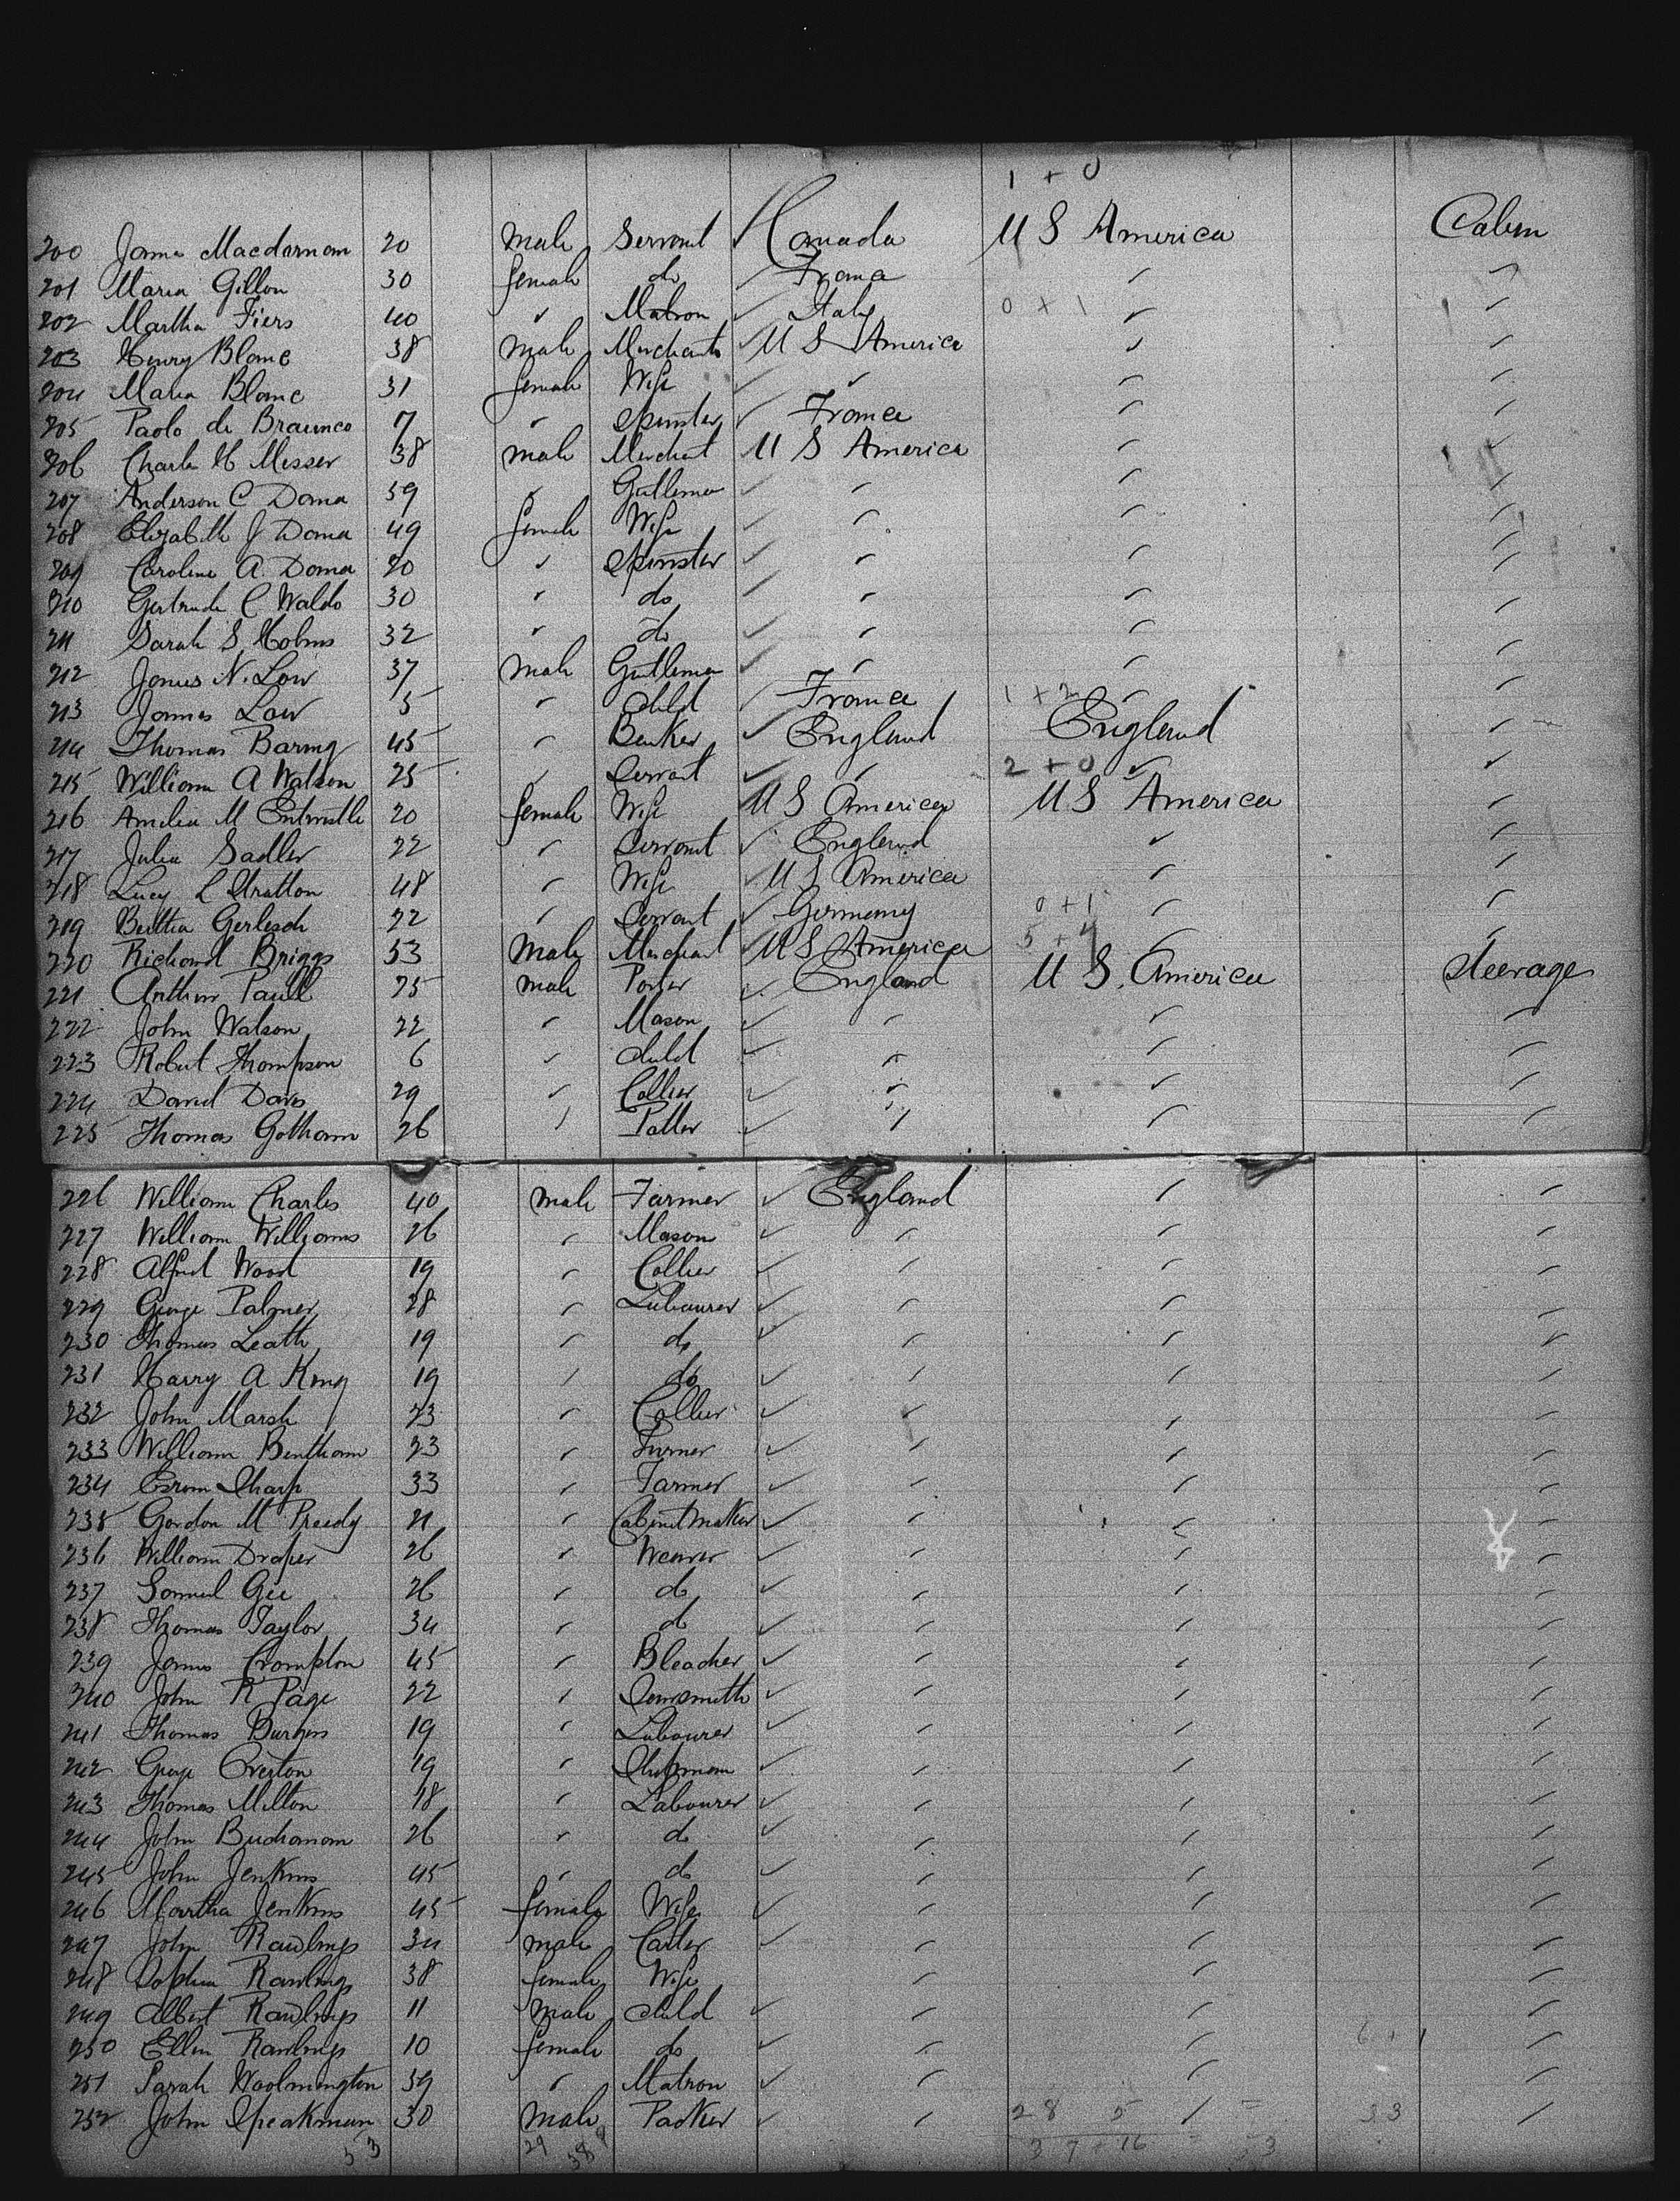 1 + 0
200 James Macdornam 20 male Servant Canada U S America Cabin
201 Maria Gillon 30 female do France "
202 Martha Fiers 40 " Matron Italy 0 + 1 "
203 Henry Blanc 38 male Merchants U S America "
204 Maria Blanc 31 female Wife " "
205 Paolo de Braunco 7 " Spinster France "
206 Charles H Messer 38 male Merchant U S America "
207 Anderson C Dama 59 " Gentleman " "
208 Elizabeth J Dama 49 female Wife " "
209 Caroline A. Dama 20 " Spinster " "
210 Gertrude C Waldo 30 " do " "
211 Sarah S Holms 32 " do " "
212 James N. Low 37 male Gentleman " "
213 James Low 5 " Child France 1 + 2 "
214 Thomas Baring 45 " Banker England England "
215 William A Watson 25 " Servant " 2 + 0 " "
216 Amelia M Entwistle 20 female Wife U S America U S America "
217 Julia Sadler 22 " Servant England " "
218 Lucy L Stratton 48 " Wife U S America " "
219 Bertha Gerlesch 22 " Servant Germany 0 + 1 " "
220 Richard Briggs 53 Male Merchant U S America 5 + 4 " "
221 Arthur Paull 25 male Porter England U S. America Steerage
222 John Watson 22 " Mason " " "
223 Robert Thompson 6 " Child " " "
224 David Davis 29 " Collier " " "
225 Thomas Gotham 26 " Potter " " "
226 William Charles 40 male Farmer England " "
227 William Williams 26 " Mason " " "
228 Alfred Wood 19 " Collier " " "
229 George Palmer 28 " Labourer " " "
230 Thomas Leath 19 " do " " "
231 Harry A King 19 " do " " "
232 John Marsh 23 " Collier " " "
233 William Bentham 23 " Turner " " "
234 Sharp 33 " Farmer " " "
235 Gordon M Preedy 21 " Cabinetmaker " " "
236 William Draper 26 " Weaver " " "
237 Samuel Gee 26 " do " " "
238 Thomas Taylor 34 " do " " "
239 James Crompton 45 " Bleacher " " "
240 John R Page 22 " " " "
241 Thomas Burgess 19 " Labourer " " "
242 George Overton 19 " Shipman " " "
243 Thomas Milton 18 " Labourer " " "
244 John Buchanan 26 " do " " "
245 John Jenkins 45 " do " " "
246 Martha Jenkins 45 female Wife " " "
247 John Rawlings 34 male Carter " " "
248 Sophia Rawlings 38 female Wife " " "
249 Albert Rawlings 11 male Child " " "
250 Ellen Rawlings 10 female do " " 6 + 1 "
251 Sarah Woolmington 59 " Matron " " "
252 John Speakman 30 Male Packer " 28 5 " = 33 "
53 29 38 9 37 + 16 = 53